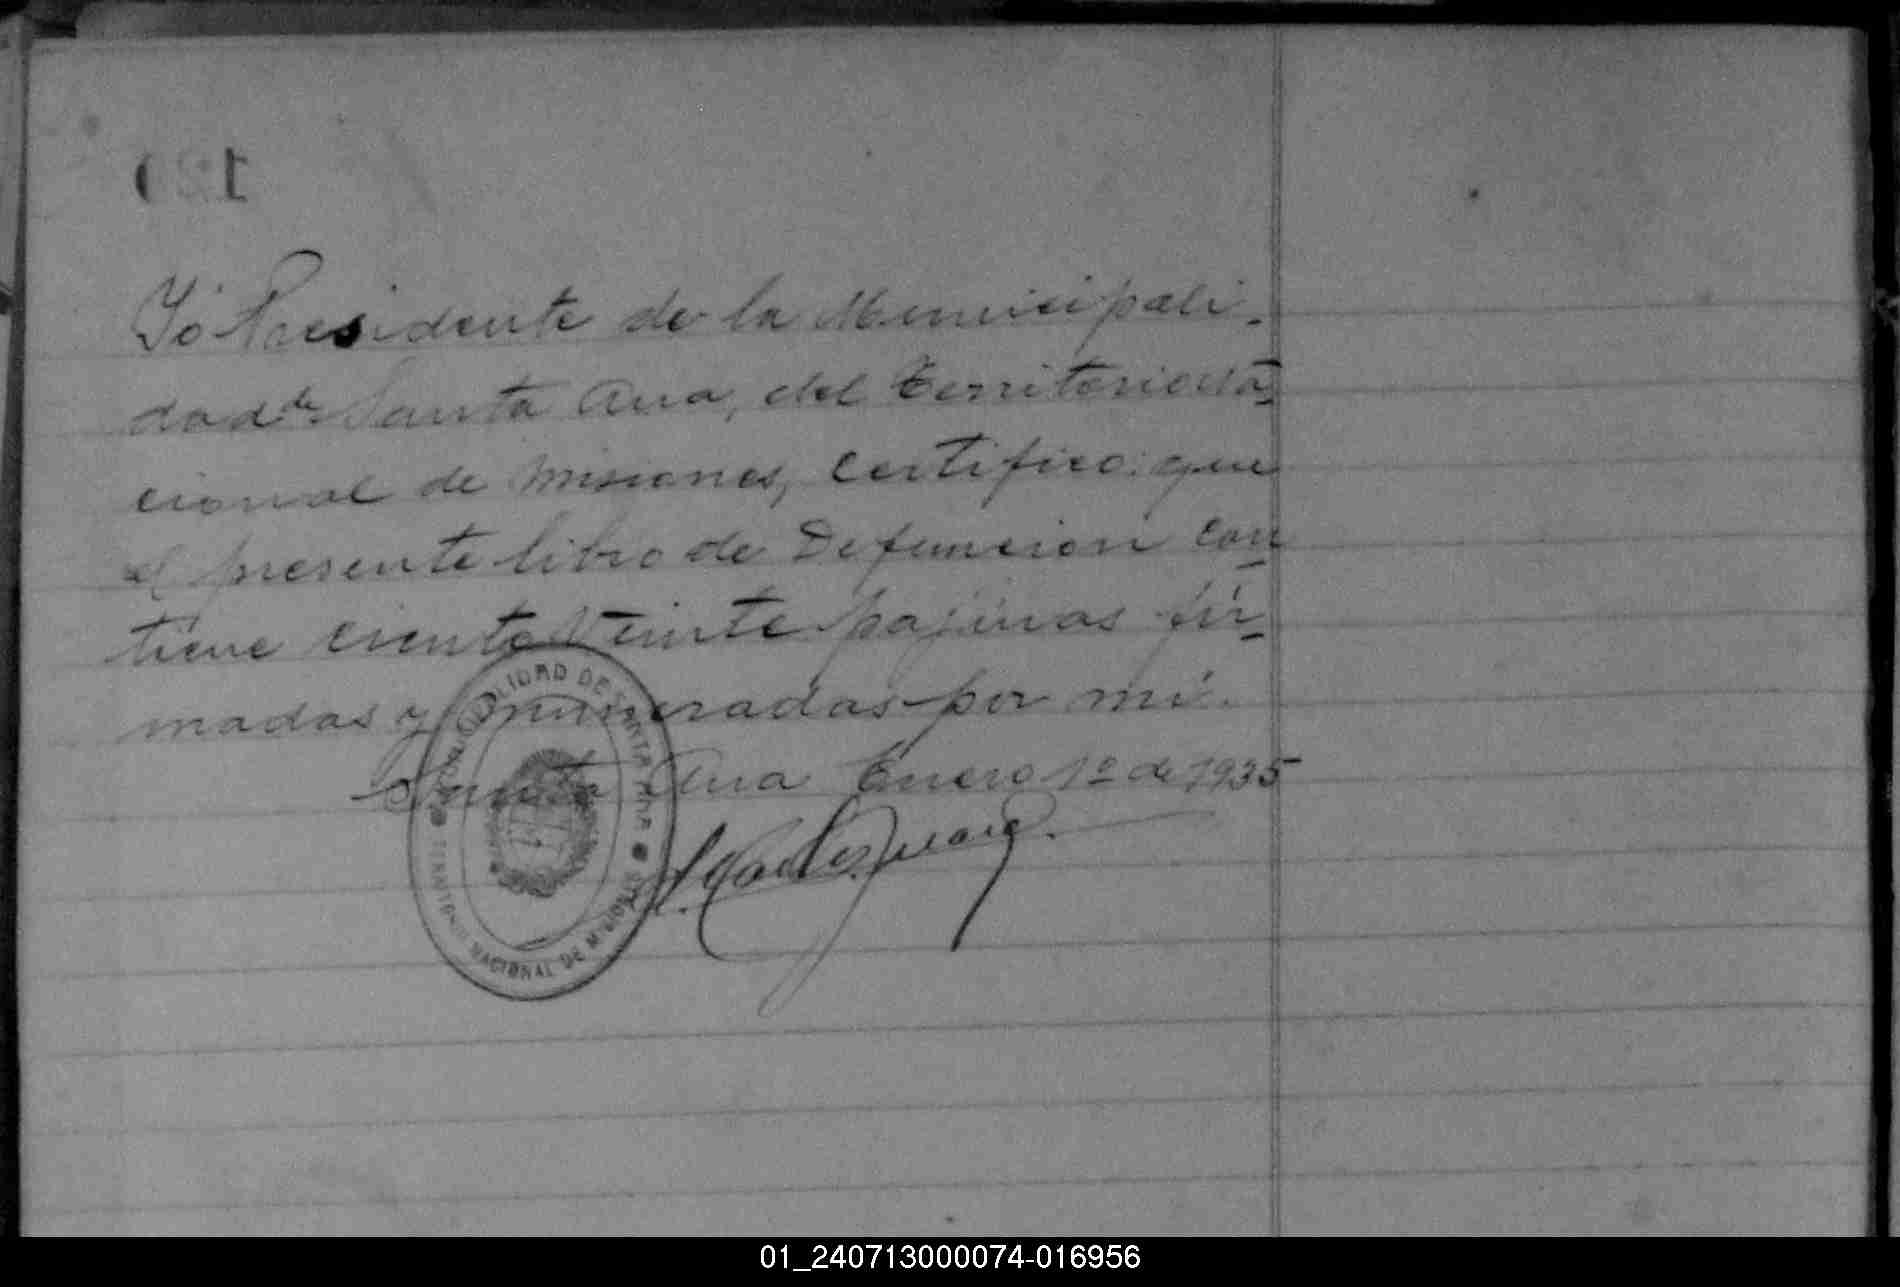 120
Yo Presidente de la Municipali-
dad de Santa Ana, del Territorio Na-
cional de Misiones, Certifico: que
el presente libro de Defuncion con-
tiene ciento veinte pajinas fir-
madas y enumeradas por mi.
Santa Ana Enero 1º de 1935
MUNICIPALIDAD DE SANTA ANA
TERRITORIO NACIONAL DE MISIONES
01_240713000074-016956